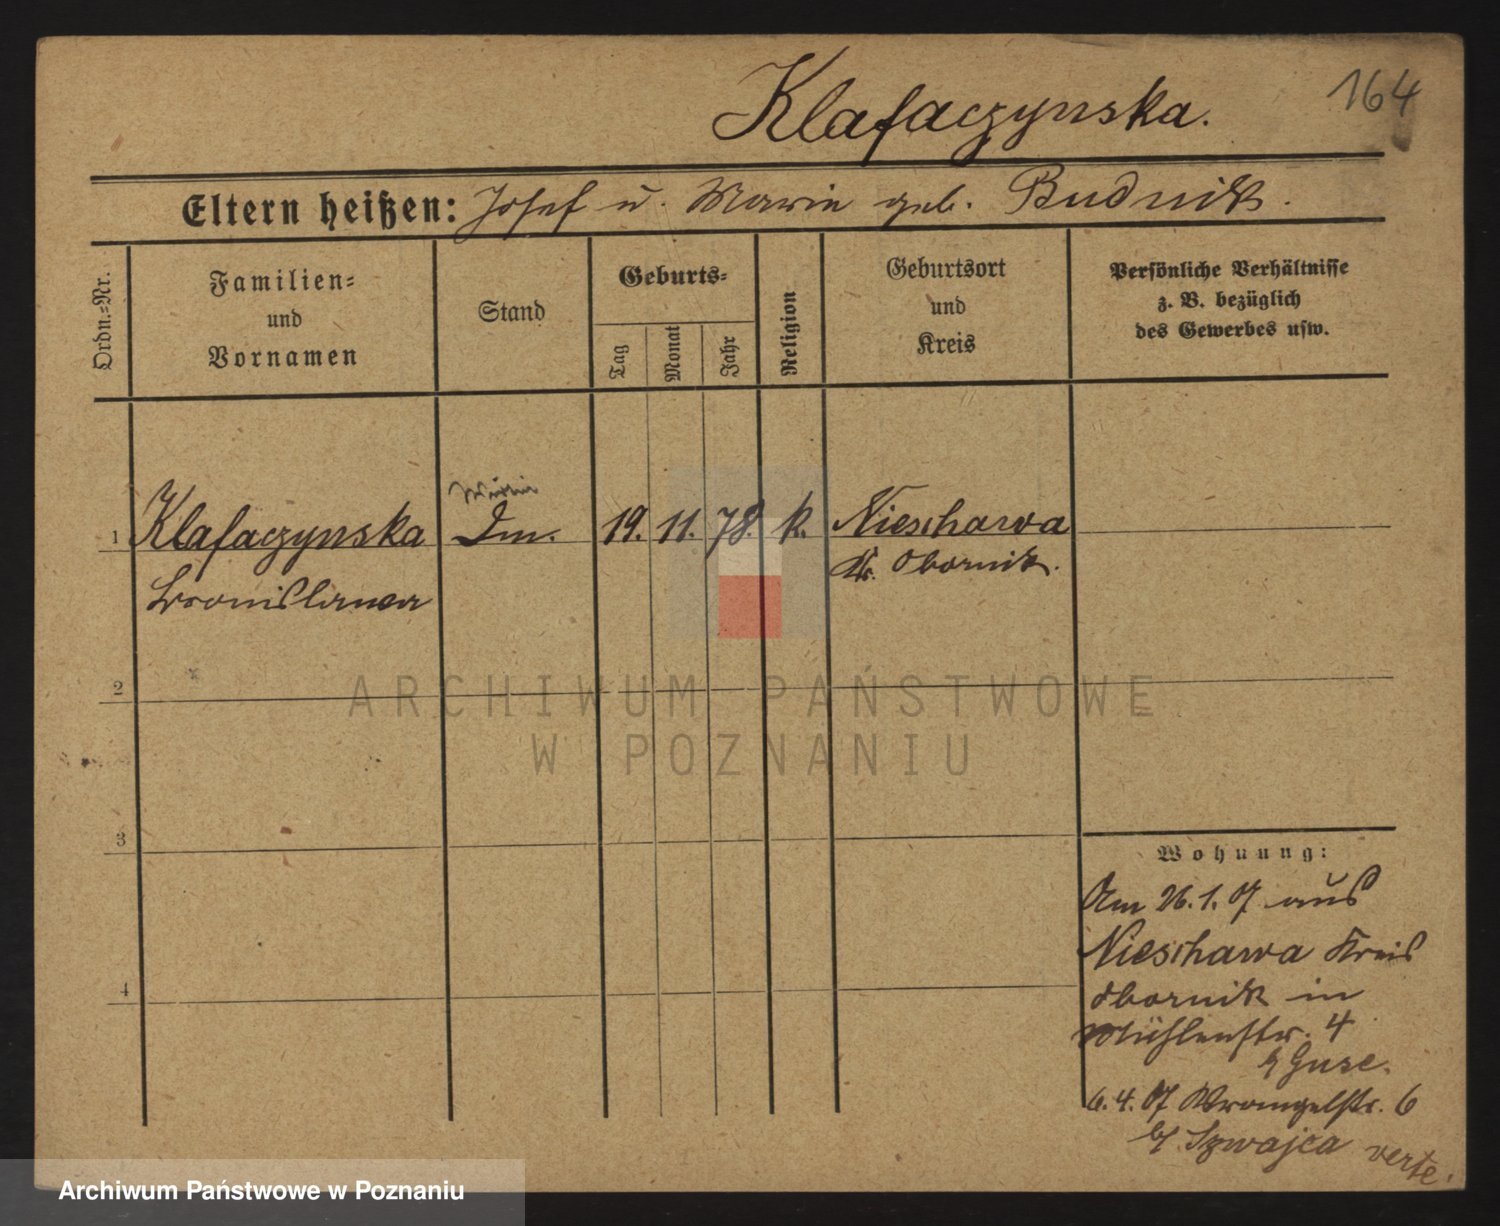 164
Klafaczynska.
Eltern heißen: Josef u. Marie geb. Budnik.
Ordn.-Nr.
Familien- und Vornamen
Stand
Geburts-
Tag
Monat
Jahr
Religion
Geburtsort und Kreis
Persönliche Verhältnisse z. B. bezüglich des Gewerbes usw.
1 Klafaczynska
Bronislawa
19. 11. 78. k. Nieschawa
Kr. Obornik.
2
3
4
Wohnung:
Am 26.1.07 aus
Nieschawa Kreis
Obornik in
Mühlenstr. 4
b/ Guse.
6.4.07 Wrangelstr. 6
b/ Szwajca verte.
ARCHIWUM PAŃSTWOWE
W POZNANIU
Archiwum Państwowe w Poznaniu